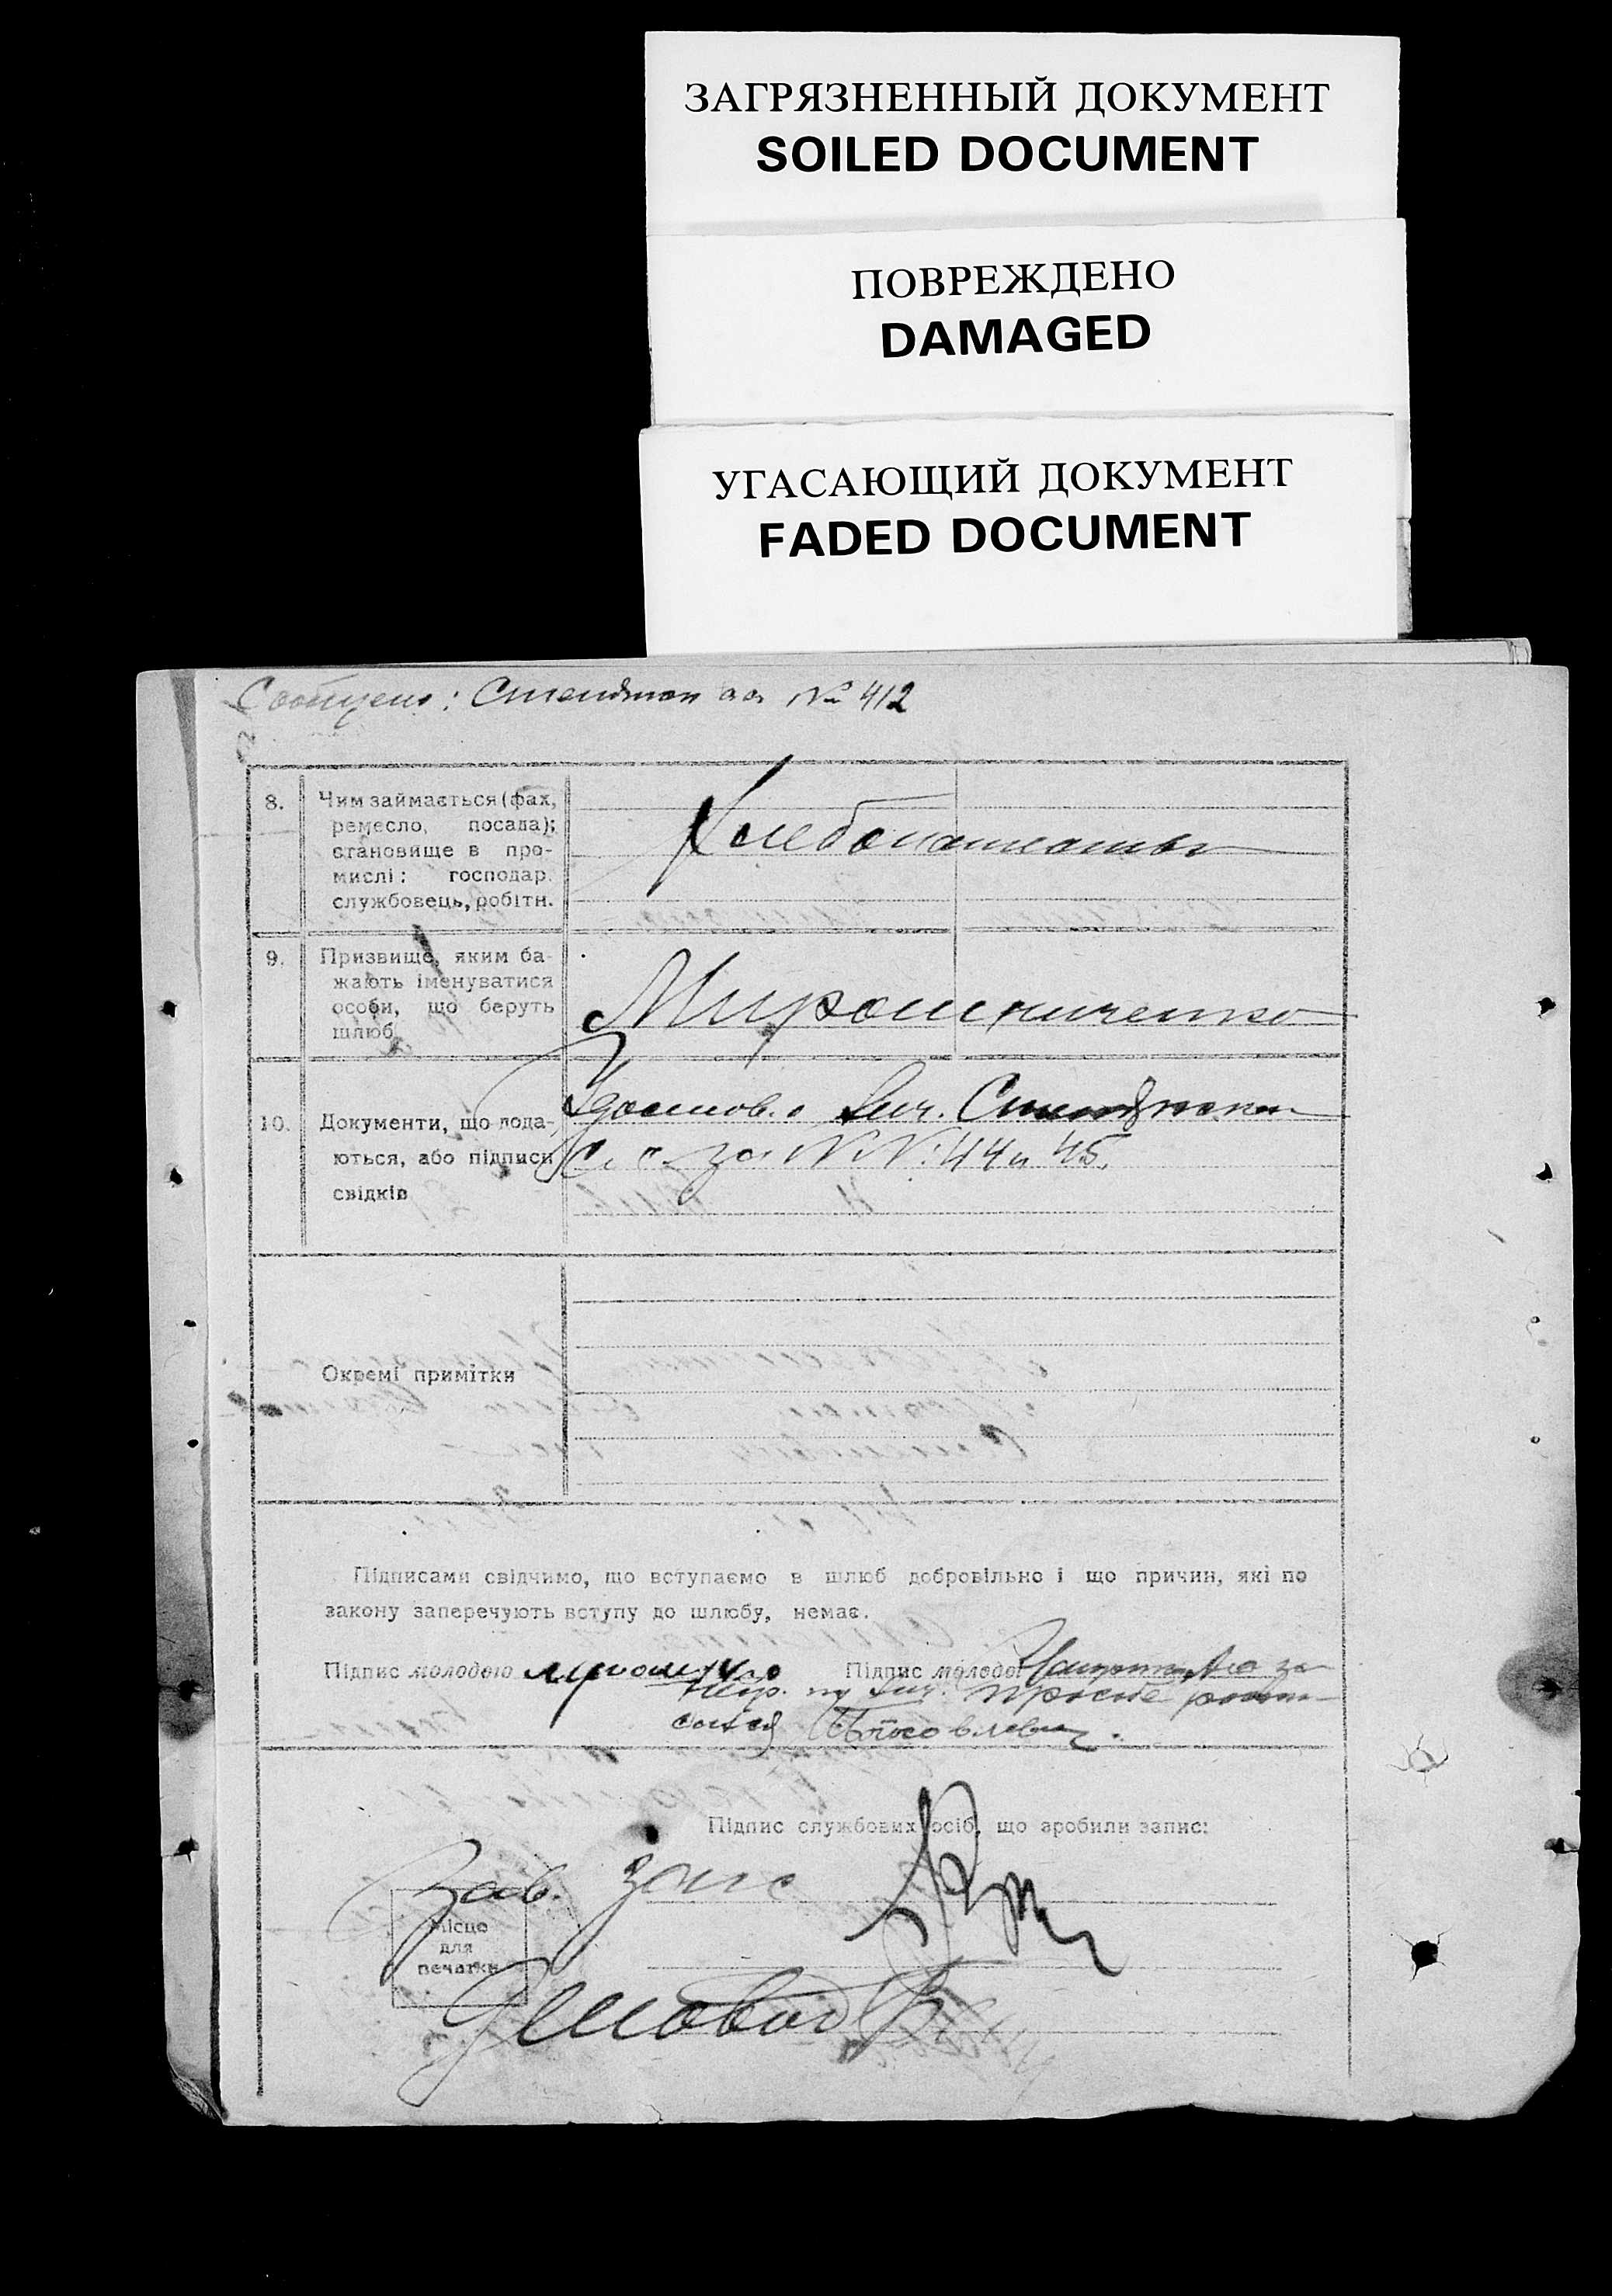 ЗАГРЯЗНЕННЫЙ ДОКУМЕНТ
SOILED DOCUMENT
ПОВРЕЖДЕНО
DAMAGED
УГАСАЮЩИЙ ДОКУМЕНТ
FADED DOCUMENT
№ 412
8. Чим займається (фах,
ремесло, посада);
становище в про-
мислі: господар.
службовець, робітн.
9. Призвище, яким ба-
жають іменуватися
особи, що беруть
шлюб
Мирошниченко
10. Документи, що пода-
ються, або підписи
свідків
Удостов.
за №№: 44 и 45.
Окремі примітки
Підписами свідчимо, що вступаємо в шлюб добровільно і що причин, які по
закону заперечують вступу до шлюбу, немає.
Підпис молодого
Підпис молодої
просьбе
Підпис службових осіб, що зробили запис:
Зав. загс
Місце
для
печатки